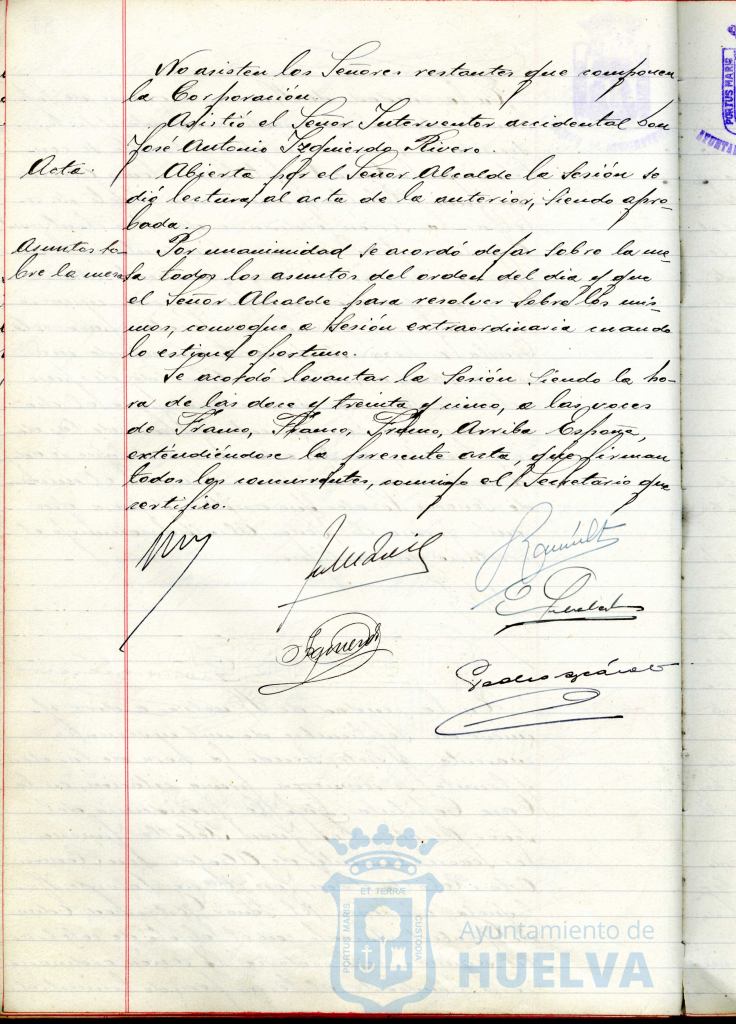 No asisten los Señores restantes que componen
la Corporación.
Asistió el Señor Interventor accidental Don
José Antonio Izquierdo Rivero.
Acta.
Abierta por el Señor Alcalde la Sesión se
dió lectura al acta de la anterior, siendo apro-
bada.
Asuntos so-
bre la mesa
Por unanimidad se acordó dejar sobre la me-
sa todos los asuntos del orden del dia y que
el Señor Alcalde para resolver sobre los mis-
mos, convoque a sesión extraordinaria cuando
lo estime oportuno.
Se acordó levantar la Sesión siendo la ho-
ra de las doce y treinta y cinco, a las voces
de Franco, Franco, Franco, Arriba España,
extendiéndose la presente acta, que firman
todos los concurrentes, conmigo el Secretario que
certifico.
PORTUS MARIS
ET TERRÆ
CUSTODIA
Ayuntamiento de
HUELVA
PORTUS MARIS